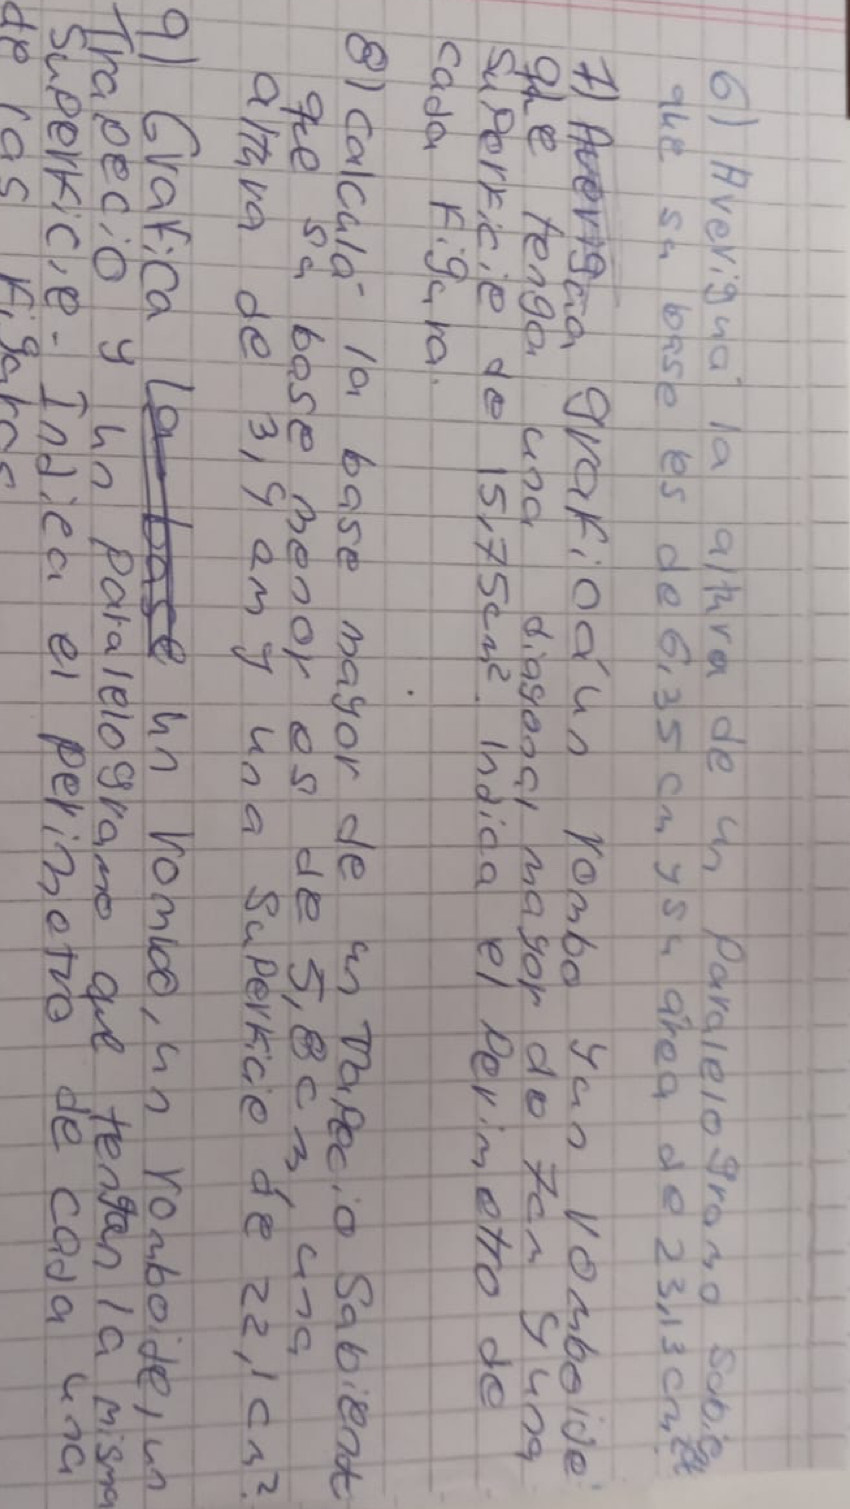 6) Averiguá la altura de un Paralelogramo sabie
que su base es de 6,35 cm y su área de 23,13 cm²
7) Averigua grafica un rombo y un romboide
que tenga una diagonal mayor de 7cm y una
superficie de 15,75cm². Indica el Perimetro de
cada figura.
8) calculá la base mayor de un Trapecio Sabiendo
que su base menor es de 5,8cm, una
altura de 3,4 cm y una superficie de 22,1 cm²
9) Grafica la base un rombo, un romboide, un
Trapecio y un Paralelogramo que tengan la misma
superficie. Indica el perimetro de cada una
de las figuras